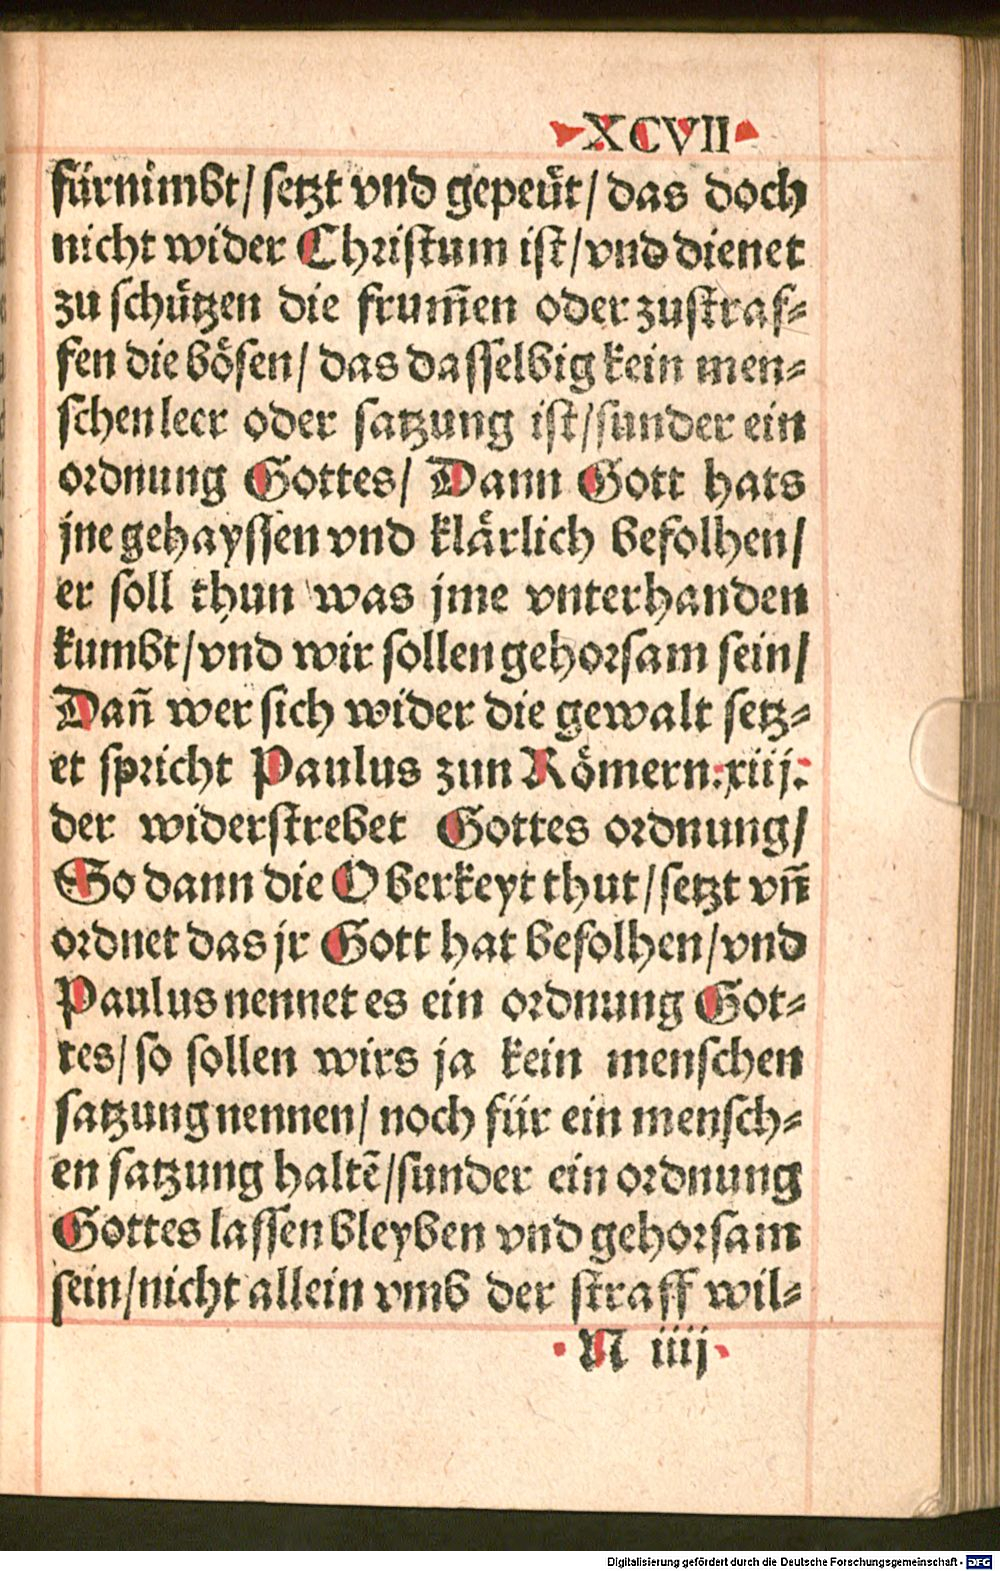 XCVII
fürnimbt/ setzt vnd gepeüt/ das doch
nicht wider Christum ist/ vnd dienet
zu schützen die frum̃en oder zustraf⸗
fen die bösen/ das dasselbig kein men⸗
schen leer oder satzung ist/ sunder ein
ordnung Gottes/ Dann Gott hats
jne gehayssen vnd klärlich befolhen/
er soll thun was jme vnterhanden
kumbt/ vnd wir sollen gehorsam sein/
Dañ wer sich wider die gewalt setz⸗
et spricht Paulus zun Römern. xiij.
der widerstrebet Gottes ordnung/
So dann die Oberkeyt thut/ setzt vñ
ordnet das jr Gott hat befolhen/ vnd
Paulus nennet es ein ordnung Got⸗
tes/ so sollen wirs ja kein menschen
satzung nennen/ noch für ein mensch⸗
en satzung haltẽ/ sunder ein ordnung
Gottes lassen bleyben vnd gehorsam
sein/ nicht allein vmb der straff wil⸗
N iiij
Digitalisierung gefördert durch die Deutsche Forschungsgemeinschaft - DFG